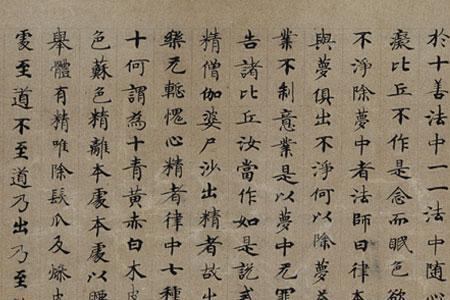 於十善法中一一法中随心
癡比丘不作是念而眠色欲
不淨除夢中者法師曰律本
與夢俱出不淨何以除夢
業不制意業是以夢中无罪
告諸比丘汝當作如是説戒
精僧伽婆尸沙出精者故出
樂无慙愧心精者律中七種
十何謂為十青黃赤白木皮
色蘇色精離本處本處以腰
舉體有精唯除髮爪及燥皮
處至道不至道乃出乃至